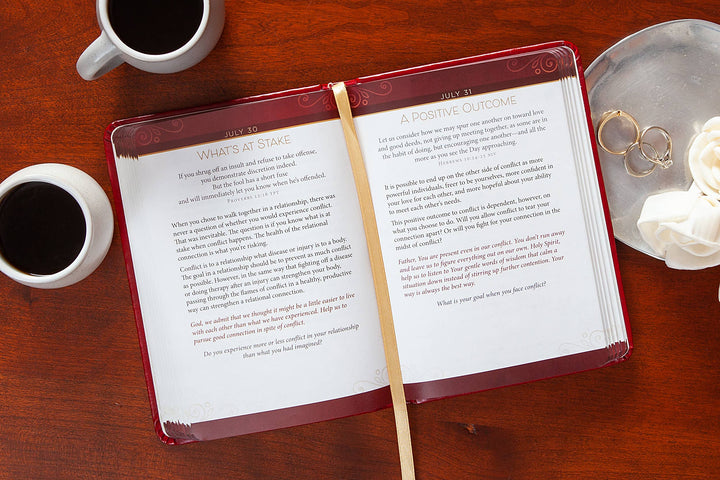 JULY 30
WHAT'S AT STAKE
If you shrug off an insult and refuse to take offense,
you demonstrate discretion indeed.
But the fool has a short fuse
and will immediately let you know when he's offended.
PROVERBS 12:16 TPT
When you chose to walk together in a relationship, there was
never a question of whether you would experience conflict.
That was inevitable. The question is if you know what is at
stake when conflict happens. The health of the relational
connection is what you're risking.
Conflict is to a relationship what disease or injury is to a body.
The goal in a relationship should be to prevent as much conflict
as possible. However, in the same way that fighting off a disease
or doing therapy after an injury can strengthen your body,
passing through the flames of conflict in a healthy, productive
way can strengthen a relational connection.
God, we admit that we thought it might be a little easier to live
with each other than what we have experienced. Help us to
pursue good connection in spite of conflict.
Do you experience more or less conflict in your relationship
than what you had imagined?
JULY 31
A POSITIVE OUTCOME
Let us consider how we may spur one another on toward love
and good deeds, not giving up meeting together, as some are in
the habit of doing, but encouraging one another—and all the
more as you see the Day approaching.
HEBREWS 10:24-25 NIV
It is possible to end up on the other side of conflict as more
powerful individuals, freer to be yourselves, more confident in
your love for each other, and more hopeful about your ability
to meet each other's needs.
This positive outcome to conflict is dependent, however, on
what you choose to do. Will you allow conflict to tear your
connection apart? Or will you fight for your connection in the
midst of conflict?
Father, You are present even in our conflict. You don't run away
and leave us to figure everything out on our own. Holy Spirit,
help us to listen to Your gentle words of wisdom that calm a
situation down instead of stirring up further contention. Your
way is always the best way.
What is your goal when you face conflict?